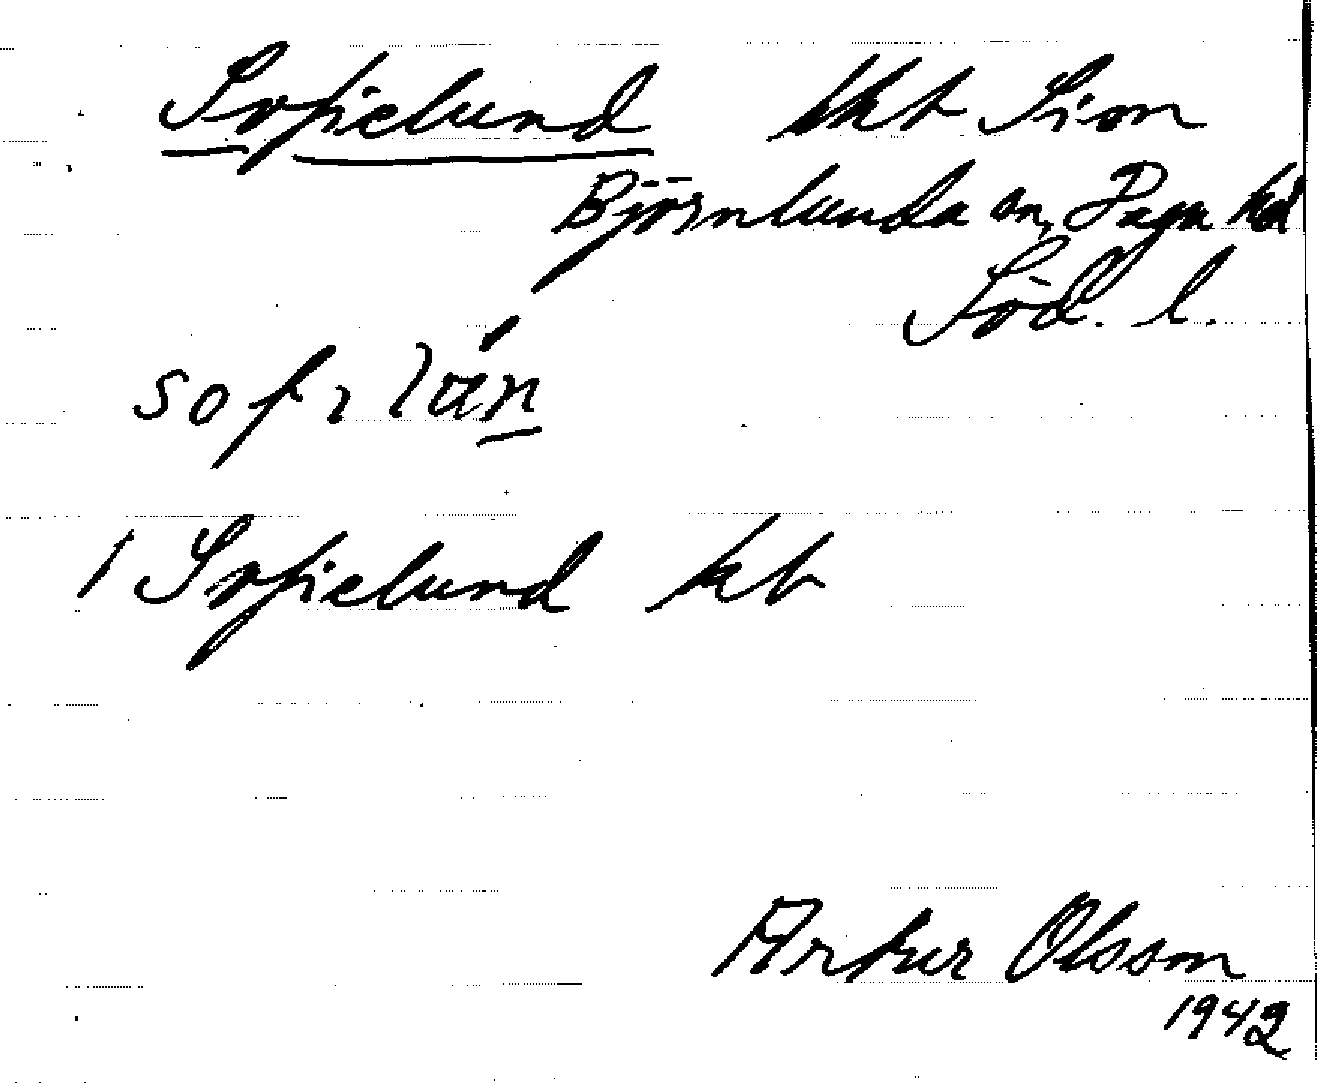 Sofielund lht Sion
Björnlunda sn, Daga hd
Söd. l.
sofɩlún
1 Sofielund ht
Artur Olsson
1942